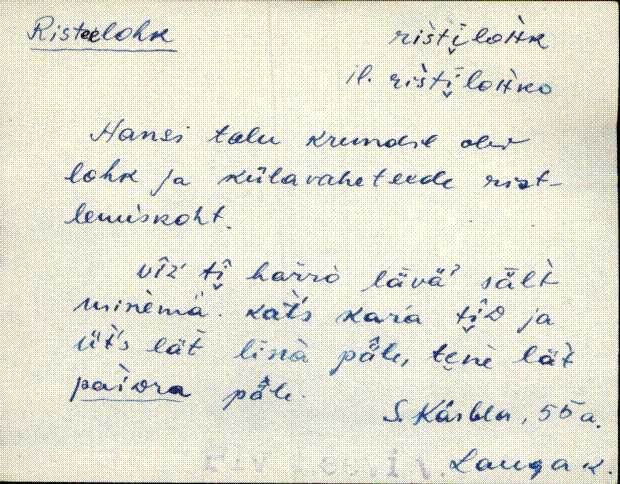 Risteelohk
rištilohk
il. rištilohko
Hansi talu krundil olev
lohk ja külavaheteede rist-
lemiskoht.
vīž tī̬ harrò lävä' sält
minèmä. kat's kara tī̬D ja
üt's lät linà päle, tene lät
paìDra päle.
S. Kärbla, 55 a.
Lauga k.